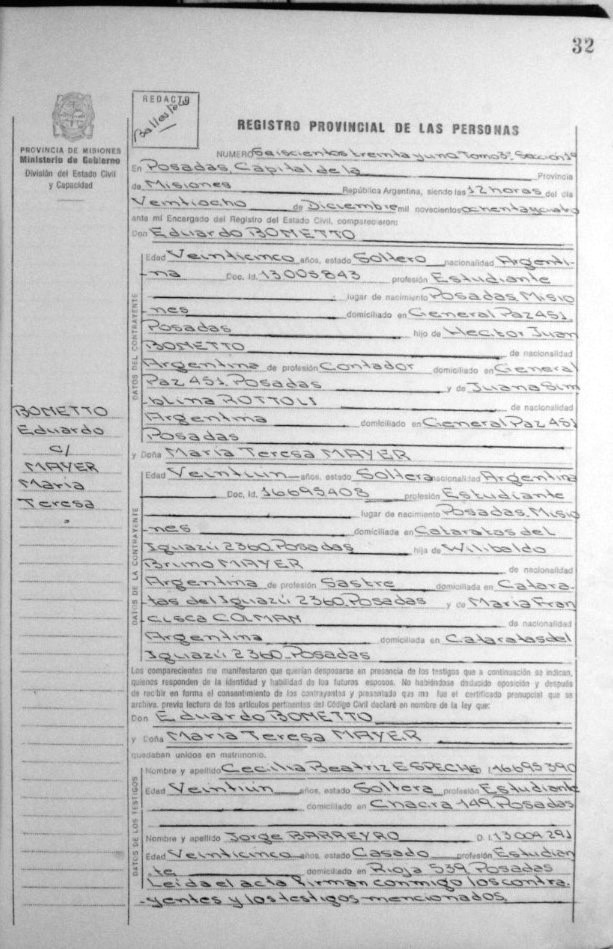 32
REDACTO
Ballester
REGISTRO PROVINCIAL DE LAS PERSONAS
PROVINCIA DE MISIONES
Ministerio de Gobierno
División del Estado Civil
y Capacidad
NUMERO Seiscientos treinta y uno Tomo 3º Sección 1ª
En Posadas, Capital de la Provincia
de Misiones República Argentina, siendo las 12 horas del día
Veintiocho de Diciembre mil novecientos ochenta y cuatro
ante mi Encargado del Registro del Estado Civil, comparecieron:
Don Eduardo BOMETTO
DATOS DEL CONTRAYENTE
Edad Veinticinco años, estado Soltero nacionalidad Argenti-
na Doc. Id. 13005843 profesión Estudiante
lugar de nacimiento Posadas, Misio
nes domiciliado en General Paz 451
Posadas hijo de Hector Juan
BOMETTO de nacionalidad
Argentina de profesión Contador domiciliado en General
Paz 451, Posadas y de Juana Sim
blina ROTTOLI de nacionalidad
Argentina domiciliado en General Paz 451
Posadas
BOMETTO
Eduardo
c/
MAYER
Maria
Teresa
"
y Doña Maria Teresa MAYER
DATOS DE LA CONTRAYENTE
Edad Veintiun años, estado Soltera nacionalidad Argentina
Doc. Id. 16695408 profesión Estudiante
lugar de nacimiento Posadas, Misio
nes domiciliada en Cataratas del
Iguazú 2360, Posadas hija de Wilibaldo
Bruno MAYER de nacionalidad
Argentina de profesión Sastre domiciliada en Catara-
tas del Iguazú 2360, Posadas y de Maria Fran
cisca COLMAN de nacionalidad
Argentina domiciliada en Cataratas del
Iguazú 2360, Posadas
Los comparecientes me manifestaron que querían desposarse en presencia de los testigos que a continuación se indican,
quienes responden de la identidad y habilidad de los futuros esposos. No habiéndose deducido oposición y después
de recibir en forma el consentimiento de los contrayentes y presentada que me fue el certificado prenupcial que se
archiva, previa lectura de los artículos pertinentes del Código Civil declaré en nombre de la ley que:
Don Eduardo BOMETTO
y Doña Maria Teresa MAYER
quedaban unidos en matrimonio.
DATOS DE LOS TESTIGOS
Nombre y apellido Cecilia Beatriz ESPECHE 16695390
Edad Veintiun años, estado Soltera profesión Estudiante
domiciliado en Chacra 149, Posadas
Nombre y apellido Jorge BARREYRO D.I 13004291
Edad Veinticinco años, estado Casado profesión Estudian
te domiciliado en Rioja 539 Posadas
Leida el acta firman conmigo los contra
yentes y los testigos mencionados